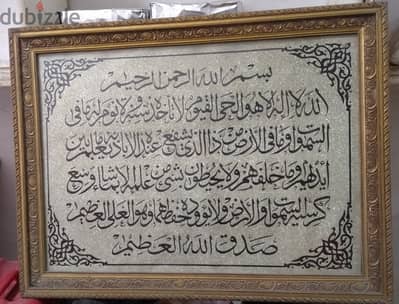 dubizzle
بسم الله الرحمن الرحيم
الله لا إله إلا هو الحي القيوم لا تأخذه سنة ولا نوم له ما في
السموات وما في الأرض من ذا الذي يشفع عنده إلا بإذنه يعلم ما بين
أيديهم وما خلفهم ولا يحيطون بشيء من علمه إلا بما شاء وسع
كرسيه السموات والأرض ولا يؤوده حفظهما وهو العلي العظيم
صدق الله العظيم